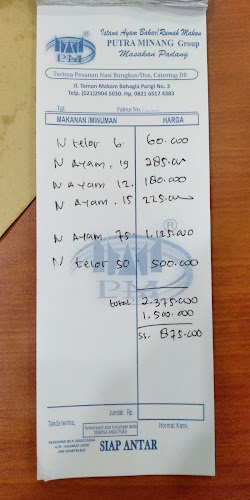 Istana Ayam Bakar/Rumah Makan
PUTRA MINANG Group
Masakan Padang
PM
Terima Pesanan Nasi Bungkus/Dus, Catering Dll
Jl. Taman Makam Bahagia Parigi No. 3
Telp. (021)2904 5030, Hp. 0821 6517 4383
Tgl. Faktur No.
MAKANAN /MINUMAN HARGA
N telor 6. 60.000
N Ayam. 19 285.000
N Ayam 12. 180.000
N Ayam. 15 225.000
N Ayam 75 1.125.000
N telor 50 500.000
PM
total 2.375.000
1.500.000
ss. 875.000
Jumlah Rp.
Tanda terima, Hormat Kami,
SIAP ANTAR